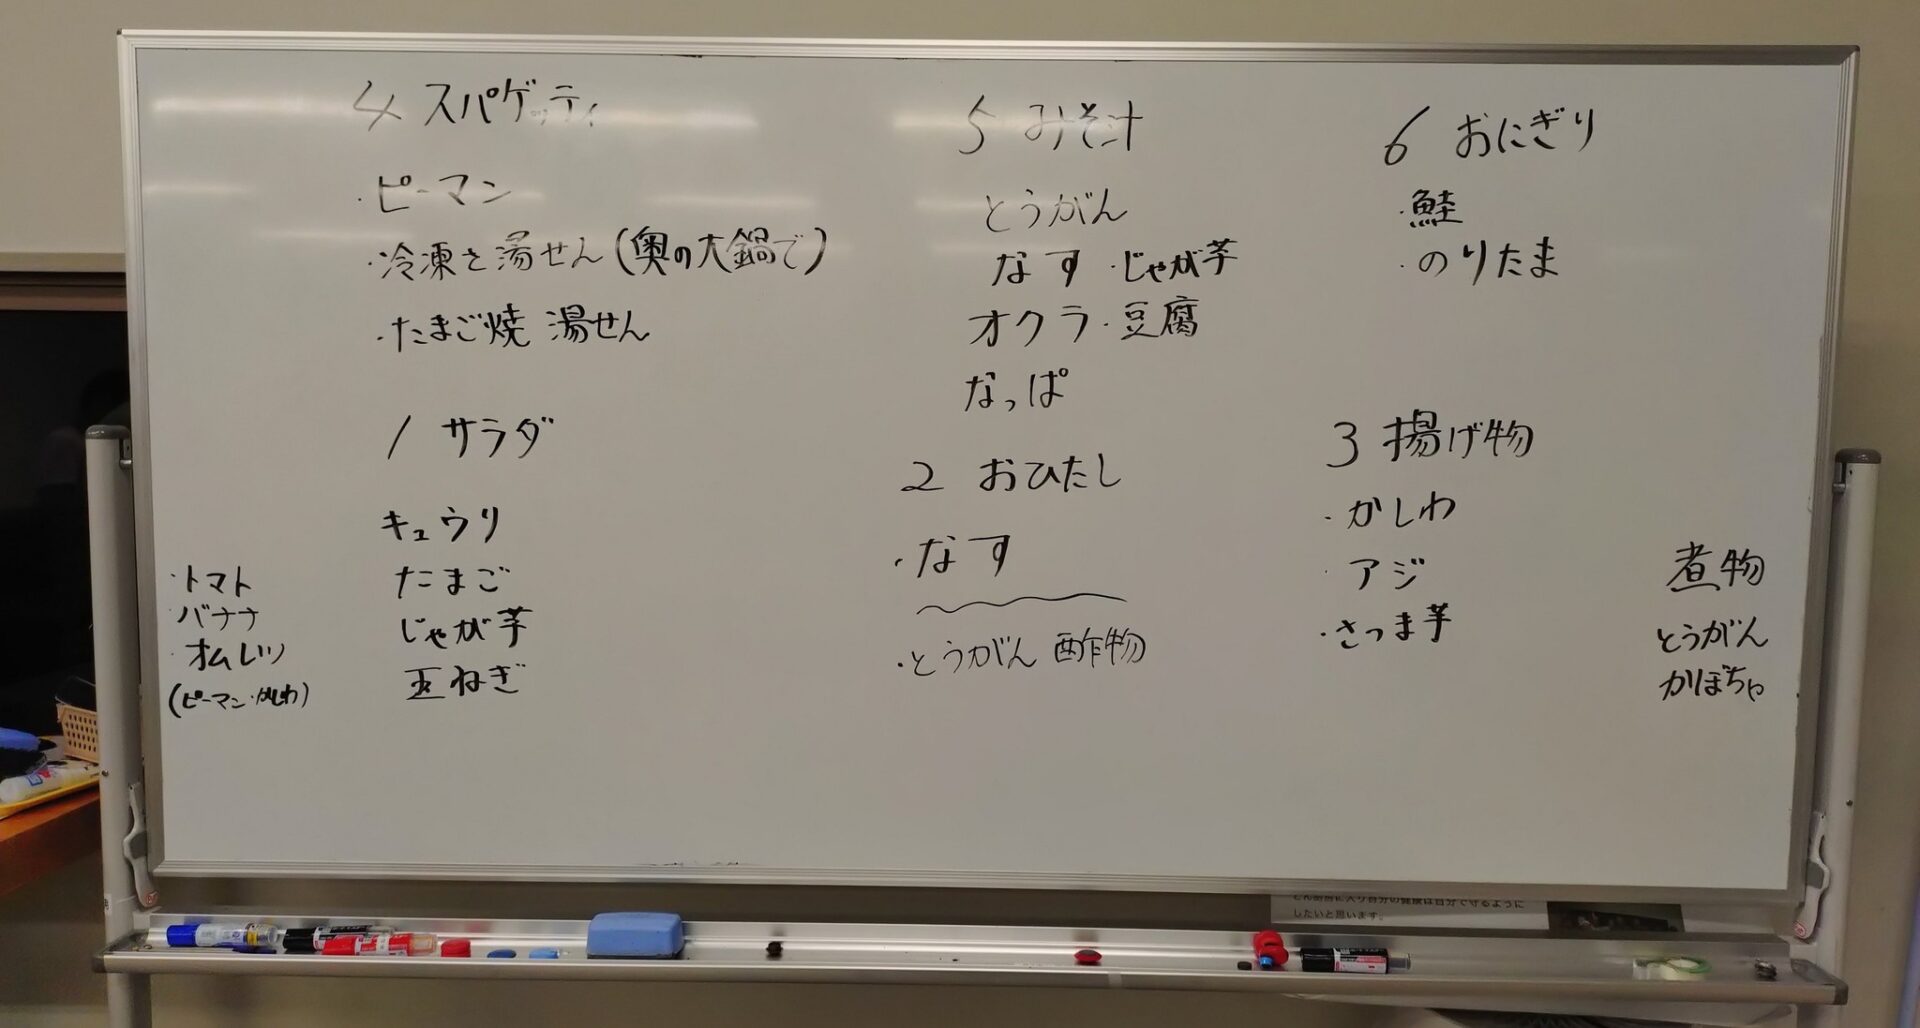 4 スパゲッティ
・ピーマン
・冷凍を湯せん(奥の大鍋で)
・たまご焼 湯せん
1 サラダ
キュウリ
たまご
じゃが芋
玉ねぎ
・トマト
・バナナ
・オムレツ
(ピーマン・かしわ)
5 みそ汁
とうがん
なす・じゃが芋
オクラ・豆腐
なっぱ
2 おひたし
・なす
・とうがん 酢物
6 おにぎり
・鮭
・のりたま
3 揚げ物
・かしわ
・アジ
・さつま芋
煮物
とうがん
かぼちゃ
したいと思います。